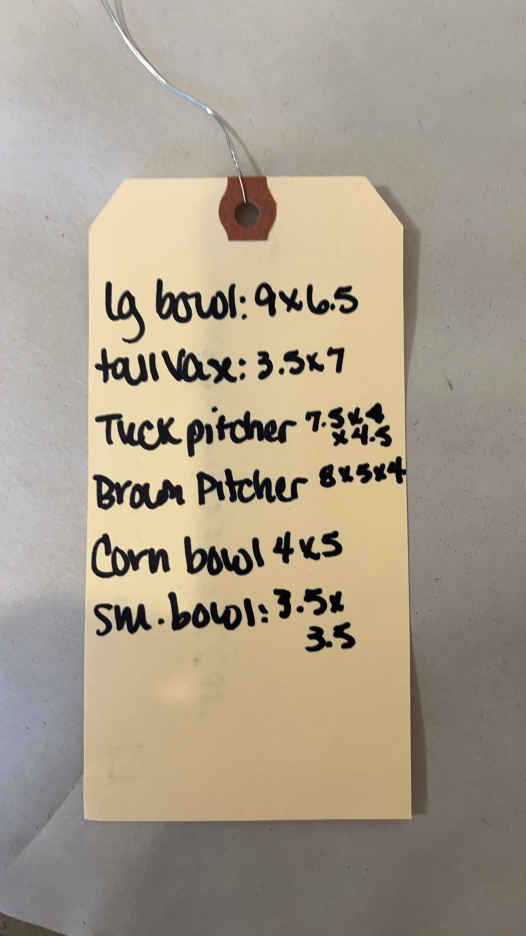 lg bowl: 9x6.5
tall Vax: 3.5x7
Tuck pitcher 7.5x4
x4.5
Brown Pitcher 8x5x4
Corn bowl 4x5
sm. bowl: 3.5x
3.5